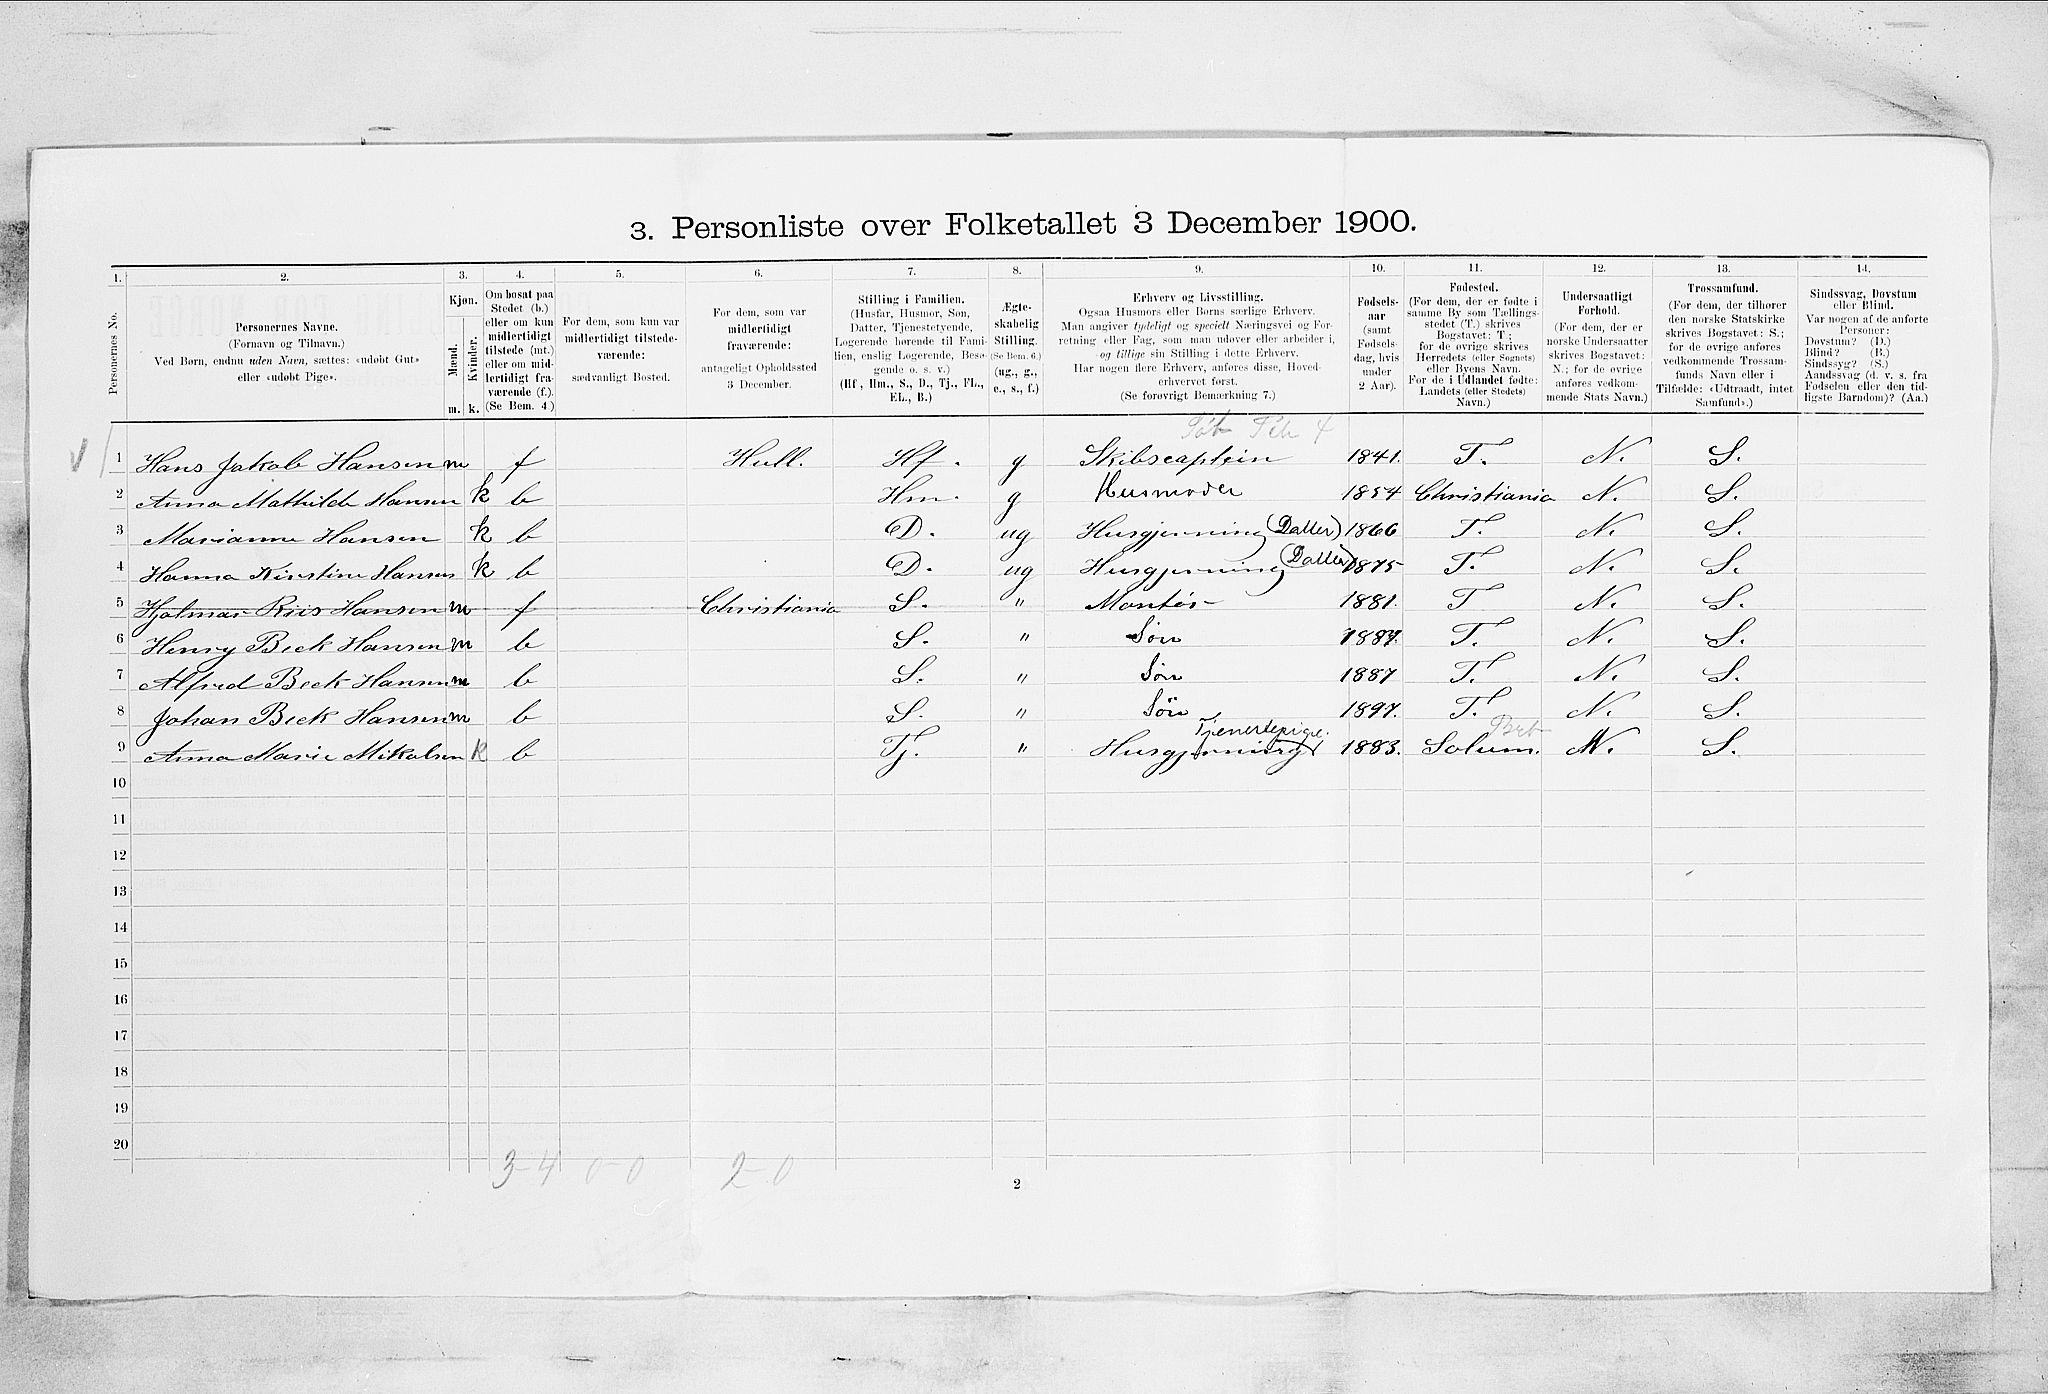 3. Personliste over Folketallet 3 December 1900.
1. 2. 3. 4. 5. 6. 7. 8. 9. 10. 11. 12. 13. 14.
Personernes No.
Personernes Navne.
(Fornavn og Tilnavn.)
Ved Børn, endnu uden Navn, sættes: «udøbt Gut»
eller «udøbt Pige».
Kjøn.
Mænd.
Kvinder.
m. k.
Om bosat paa
Stedet (b.)
eller om kun
midlertidigt
tilstede (mt.)
eller om mid-
lertidigt fra-
værende (f.).
(Se Bem. 4.)
For dem, som kun var
midlertidigt tilstede-
værende:
sædvanligt Bosted.
For dem, som var
midlertidigt
fraværende:
antageligt Opholdssted
3 December.
Stilling i Familien.
(Husfar, Husmor, Søn,
Datter, Tjenestetyende,
Logerende hørende til Fami-
lien, enslig Logerende, Besø-
gende o. s. v.)
(Hf., Hm., S., D., Tj., FL.,
EL., B.)
Ægte-
skabelig
Stilling.
(Se Bem. 6.)
(ug., g.,
e., s., f.)
Erhverv og Livsstilling.
Ogsaa Husmors eller Børns særlige Erhverv.
Man angiver tydeligt og specielt Næringsvei og For-
retning eller Fag, som man udøver eller arbeider i,
og tillige sin Stilling i dette Erhverv.
Har nogen flere Erhverv, anføres disse, Hoved-
erhvervet først.
(Se forøvrigt Bemærkning 7.)
Fødsels-
aar
(samt
Fødsels-
dag, hvis
under
2 Aar).
Fødested.
(For dem, der er fødte i
samme By som Tællings-
stedet (T.) skrives
Bogstavet: T.;
for de øvrige skrives
Herredets (eller Sognets)
eller Byens Navn.
For de i Udlandet fødte:
Landets (eller Stedets)
Navn.)
Undersaatligt
Forhold.
(For dem, der er
norske Undersaatter
skrives Bogstavet:
N.; for de øvrige
anføres vedkom-
mende Stats Navn.)
Trossamfund.
(For dem, der tilhører
den norske Statskirke
skrives Bogstavet: S.;
for de øvrige anføres
vedkommende Trossam-
funds Navn eller i
Tilfælde: «Udtraadt, intet
Samfund».)
Sindssvag, Døvstum
eller Blind.
Var nogen af de anførte
Personer:
Døvstum? (D.)
Blind? (B.)
Sindssyg? (S.)
Aandssvag (d. v. s. fra
Fødselen eller den tid-
ligste Barndom)? (Aa.)
1 Hans Jakob Hansen m f Hull. Hf. g Skibscaptein 1841. T. N. S.
2 Anna Mathilde Hansen k b Hm. g Husmoder 1854 Christiania N. S.
3 Marianne Hansen k b D. ug Husgjerning (Datter) 1866 T. N. S.
4 Hanna Kirstine Hansen k b D. ug Husgjerning (Datter) 1875 T. N. S.
5 Hjalmar Riis Hansen m f Christiania S. " Montør 1881. T N. S.
6 Henry Beck Hansen m b S. " Søn 1887. T. N. S.
7 Alfred Beck Hansen m b S. " Søn 1887 T. N. S.
8 Johan Beck Hansen m b S. " Søn 1897. T. N. S.
Tjenestepige.
9 Anna Marie Mikalsen k b Tj. " Husgjerning 1883. Solum. N. S.
10
11
12
13
14
15
16
17
18
19
20
3-4 0-0 2-0
2